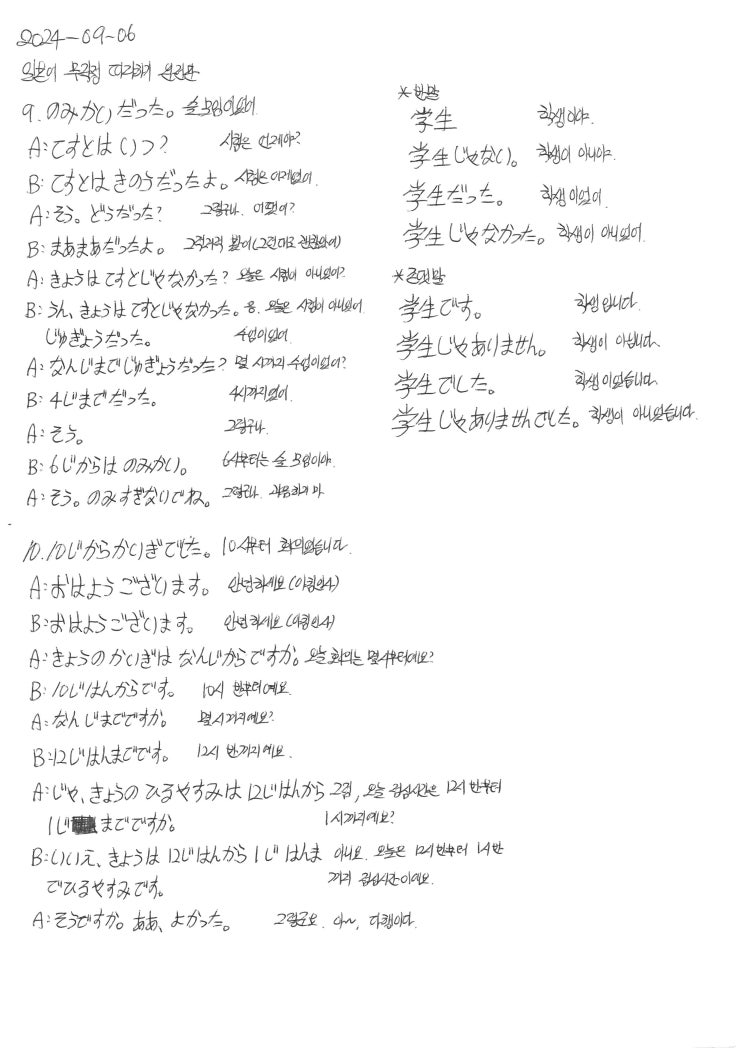 2024-09-06
일본어 무작정 따라하기 완전판
9. のみかいだった。 술 모임이었어.
A: てすとは いつ? 시험은 언제야?
B: てすとは きのうだったよ。 시험은 어제였어.
A: そう。どうだった? 그렇구나. 어땠어?
B: まあまあだったよ。 그럭저럭 봤어(그런대로 괜찮았어)
A: きょうは てすとじゃなかった? 오늘은 시험이 아니었어?
B: うん、きょうは てすとじゃなかった。 응. 오늘은 시험이 아니었어.
じゅぎょうだった。 수업이었어.
A: なんじまで じゅぎょうだった? 몇 시까지 수업이었어?
B: 4じまでだった。 4시까지였어.
A: そう。 그렇구나.
B: 6じからは のみかい。 6시부터는 술 모임이야.
A: そう。のみすぎないでね。 그렇구나. 과음하지 마.
10. 10じからかいぎでした。 10시부터 회의였습니다.
A: おはようございます。 안녕하세요(아침인사)
B: おはようございます。 안녕하세요(아침인사)
A: きょうの かいぎは なんじからですか。 오늘 회의는 몇 시부터예요?
B: 10じはんからです。 10시 반부터예요.
A: なんじまでですか。 몇 시까지예요?
B: 12じはんまでです。 12시 반까지예요.
A: じゃ、きょうの ひるやすみは 12じはんから 그럼, 오늘 점심시간은 12시 반부터
1じ までですか。 1시까지예요?
B: いいえ、きょうは 12じはんから 1じ はんま 아니요. 오늘은 12시 반부터 1시 반
でひるやすみです。 까지 점심시간이에요.
A: そうですか。ああ、よかった。 그렇군요. 아~, 다행이다.
*반말
学生 학생이야.
学生じゃない。 학생이 아니야.
学生だった。 학생이었어.
学生じゃなかった。 학생이 아니었어.
*존댓말
学生です。 학생입니다.
学生じゃありません。 학생이 아닙니다.
学生でした。 학생이었습니다.
学生じゃありませんでした。 학생이 아니었습니다.